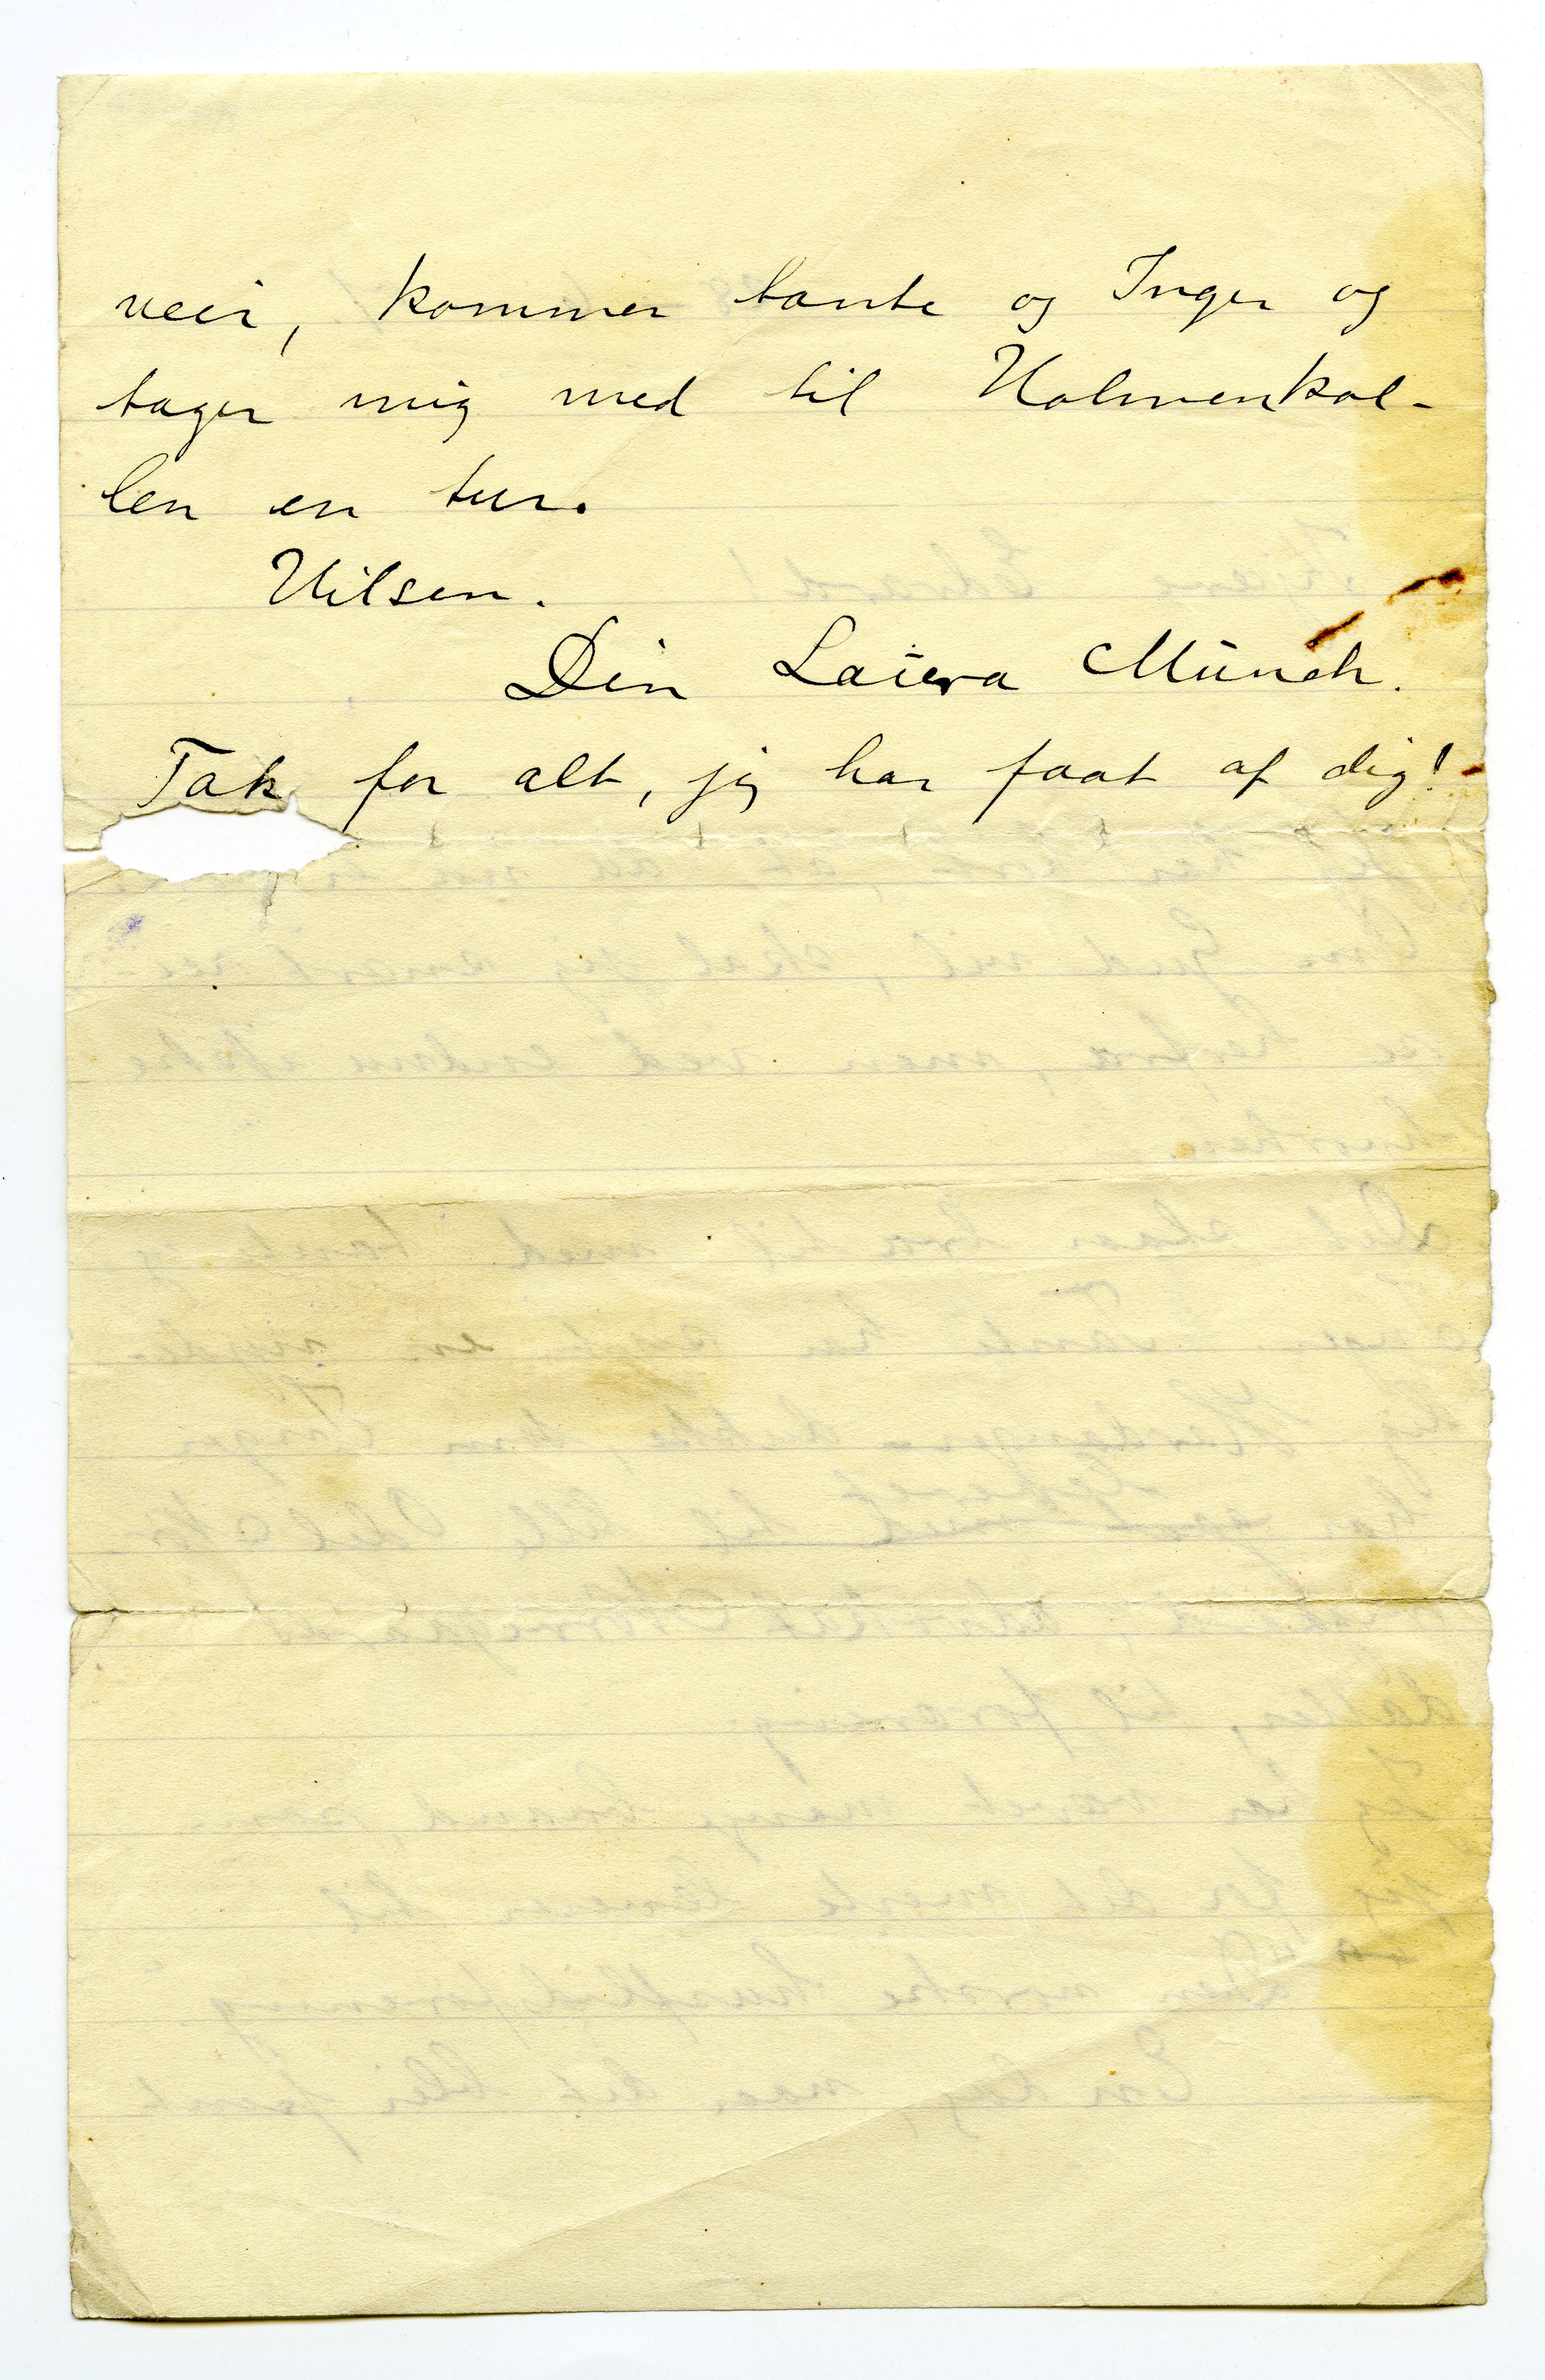 veir, kommer tante og Inger og
tager mig med til Holmenkol-
len en tur.
Hilsen.
Din Laura Münch.
Tak for alt, jeg har faat af dig!